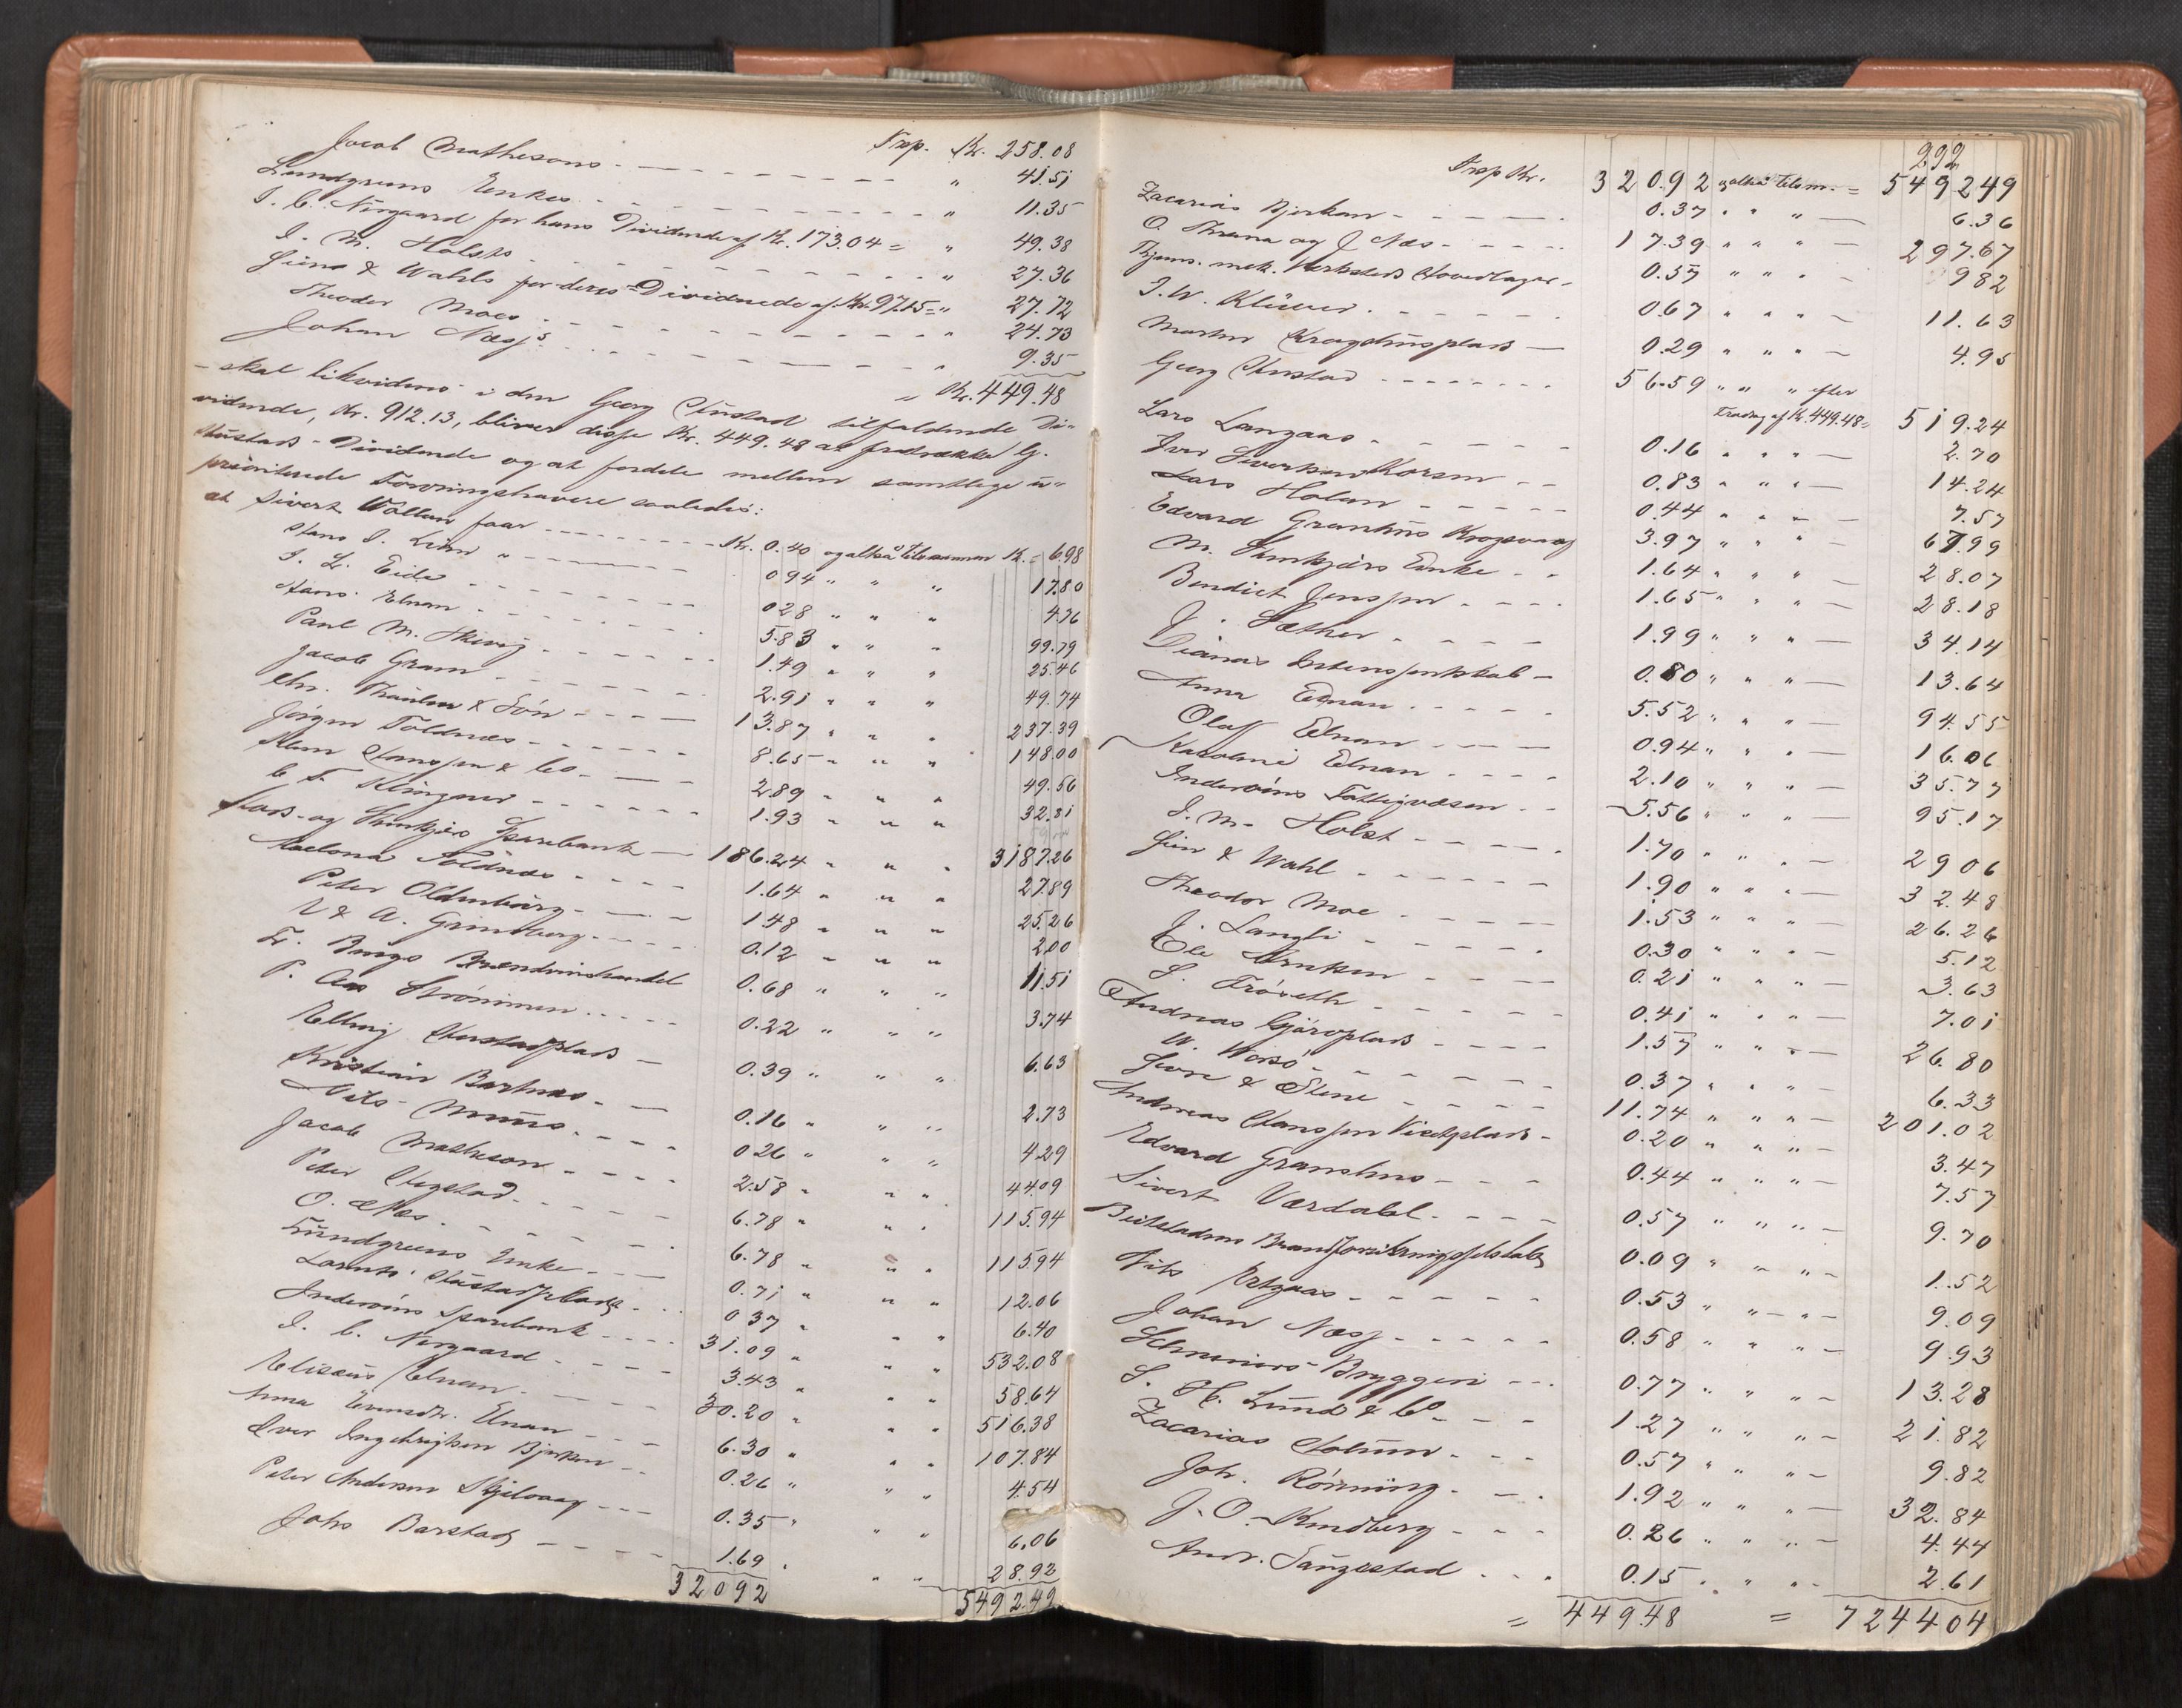 Trsp. Kr. 258.08
Jacob Mathesons - - - - " 41.51
Lundgreens Enkes - - - - " 11.35
I. C. Nirgaard for hans Dividende af Kr. 173.04 = " 49.38
I. M. Holsts - - - - " 27.36
Giæver & Wahls for deres Dividende af Kr. 97.15 = " 27.72
Theodor Moes - - - - " 24.73
Johan Næss's - - - - " 9.35
= Kr. 449.48
- skal likvideres i den Georg Hustad tilfaldende Di-
vidende, Kr. 912.13, bliver disse Kr. 449.48 at fratrække G.
Hustads Dividende og at fordele mellem samtlige u-
prioriterede Fordringshavere saaledes:
at Sivert Vollan faar - - - Kr. 0.40 og altsaa tilsammen Kr. = 6.98
Hans I. Lian " - - - 0.94 " " " 17.80
I. L. Eide - - - 0.28 " " " 4.76
Hans Elnan - - - 5.83 " " " 99.79
Paul M. - - - 1.49 " " " 25.46
Jacob Gram - - - 2.91 " " " 49.74
Chr. Thaulow & Søn - - - 13.87 " " " 237.39
Jørgen Foldnæs - - - 8.65 " " " 148.00
Hanssen & Co - - - 2.89 " " " 49.56
C. F. Klingner - - - 1.93 " " " 32.81
Stods- og Stenkjærs Sparebank - 186.24 " " " 3187.26
Foldnæs - - - 1.64 " " " 27.89
Peter Oldenborg - - - 1.48 " " " 25.26
V & A. Grindberg - - - 0.12 " " " 2.00
F. Brugs Brændevinshandel 0.68 " " " 11.51
P. Aas Strømmen - - - 0.22 " " " 3.74
Elling Hustadplads - 0.39 " " " 6.63
Kristian Bartnæs - - - 0.16 " " " 2.73
Nils Muus - - - 0.26 " " " 4.29
Jacob Matheson - - - 2.58 " " " 44.09
Peter Hegstad - - - 6.78 " " " 115.94
O. Næs - - - 6.78 " " " 115.94
Lundgreens Enke - - - 0.71 " " " 12.06
Lorents Hustadplads - - - 0.37 " " " 6.40
Inderøens Sparebank - - - 31.09 " " " 532.08
I. C. Nirgaard - - - 3.43 " " " 58.64
Elisæus Elnan - - - 30.20 " " " 516.38
Anna Evensdtr. Elnan - - - 6.30 " " " 107.84
Iver Ingebrigtsen Bjerken - - 0.26 " " " 4.54
Peter Andersen Skjelvaag - - - 0.35 " " " 6.06
Johs Barstad - - - 1.69 " " " 28.92
320.92 5492.49
292
Trsp Kr. 320.92 og altsaa tilsm. = 5492.49
Zacarias Bjerkan - - - 0.37 " " " - 6.36
O. Thrana og J. Næs - - - 17.39 " " " - 297.67
Thjems. mek. Verksteds Hovedlager - 0.57 " " " - 9.82
I. W. Klüwer - - - 0.67 " " " - 11.63
Martin Kregshusplads - 0.29 " " " - 4.95
Georg Hustad - - - 56.59 " " " efter
Fradrag af Kr. 449.48 = 519.24
Lars Langaas - - - 0.16 " " " - 2.70
Iver Sivertsen Korsen - - 0.83 " " " - 14.24
Lars Holan - - - 0.44 " " " - 7.57
Edvard Granhus Kregsvaag 3.97 " " " - 67.99
M. Stenkjærs Enke - - 1.64 " " " - 28.07
Bendict Jenssen - - - 1.65 " " " - 28.18
J. Sæther - - - 1.99 " " " - 34.14
Dianas Interessentskab - 0.80 " " " - 13.64
Anna Elnan - - - 5.52 " " " - 94.55
Olaf Elnan - - - 0.94 " " " - 16.06
Karoline Elnan - - - 2.10 " " " - 35.77
Inderøens Fattigvæsen - - 5.56 " " " - 95.17
I. M. Holst - - - 1.70 " " " - 29.06
Giæver & Wahl - - - 1.90 " " " - 32.48
Theodor Moe - - - 1.53 " " " - 26.26
J. Langli - - - 0.30 " " " - 5.12
Ole - - - 0.21 " " " - 3.63
S. Frøseth - - - 0.41 " " " - 7.01
Andreas Gjørvplads - - - 1.57 " " " - 26.80
W. Worsø - - - 0.37 " " " - 6.33
& Stene - - - 11.74 " " " - 201.02
Andreas Hanssen Vistplads - 0.20 " " " - 3.47
Edvard Granhus - - - 0.44 " " " - 7.57
Sivert Værdahl - - - 0.57 " " " - 9.70
Beitstadens Brandforsikringsselskab 0.09 " " " - 1.52
Nils - - - 0.53 " " " - 9.09
Johan Næss - - - 0.58 " " " - 9.93
Schreiners Bryggeri - - - 0.77 " " " - 13.28
S. H. Lund & Co - - - 1.27 " " " - 21.82
Zacarias Holum - - - 0.57 " " " - 9.82
Joh. Rønning - - - 1.92 " " " - 32.84
J. O. Kindberg - - - 0.26 " " " - 4.44
Andr. Saugestad - - - 0.15 " " " - 2.61
= 449.48 = 7244.04